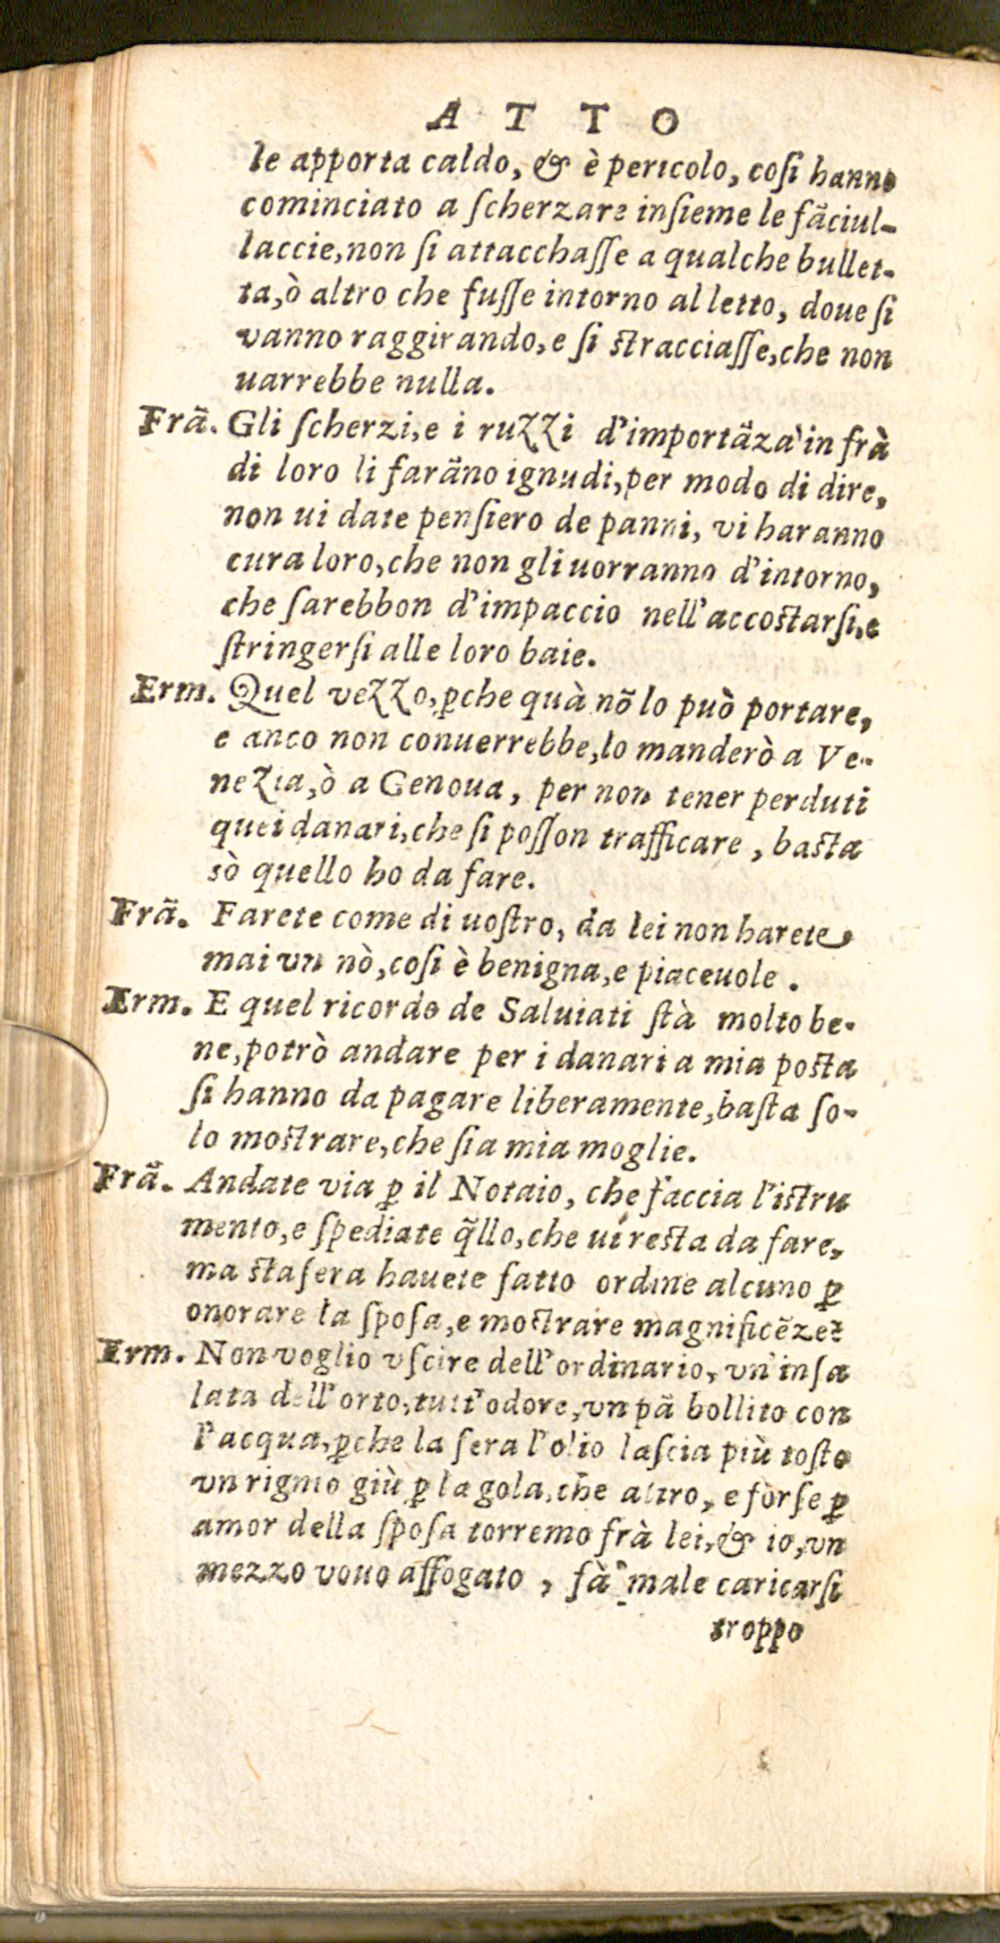 ATTO
le apporta caldo, & è pericolo, coſi hanno
cominciato a ſcherzare inſieme le fãciul-
laccie, non ſi attacchaſſe a qualche bullet-
ta, ò altro che fuſſe intorno al letto, doue ſi
vanno raggirando, e ſi ſtracciaſſe, che non
uarrebbe nulla.
Frã. Gli ſcherzi, e i ruzzi d'importãza in frà
di loro li farãno ignudi, per modo di dire,
non ui date penſiero de panni, vi haranno
cura loro, che non gli uorranno d'intorno,
che ſarebbon d'impaccio nell'accoſtarſi, e
ſtringerſi alle loro baie.
Erm. Quel vezzo, ꝑche quà nõ lo può portare,
e anco non conuerrebbe, lo manderò a Ve-
nezia, ò a Genoua, per non tener perduti
quei danari, che ſi poſſon trafficare, baſta
sò quello ho da fare.
Frã. Farete come di uoſtro, da lei non harete
mai vn nò, coſi è benigna, e piaceuole.
Erm. E quel ricordo de Saluiati ſtà molto be-
ne, potrò andare per i danari a mia poſta
ſi hanno da pagare liberamente, baſta ſo-
lo moſtrare, che ſia mia moglie.
Frã. Andate via ꝑ il Notaio, che faccia l'iſtru
mento, e ſpediate q̃llo, che ui reſta da fare,
ma ſtaſera hauete fatto ordine alcuno ꝑ
onorare la ſpoſa, e moſtrare magnificẽze?
Erm. Non voglio vſcire dell'ordinario, vn'inſa
lata dell'orto, tutt'odore, vn pã bollito con
l'acqua, ꝑche la ſera l'olio laſcia più toſto
vn rigmo giù ꝑ la gola, che altro, e forſe ꝑ
amor della ſpoſa torremo frà lei, & io, vn
mezzo vouo affogato, fà male caricarſi
troppo